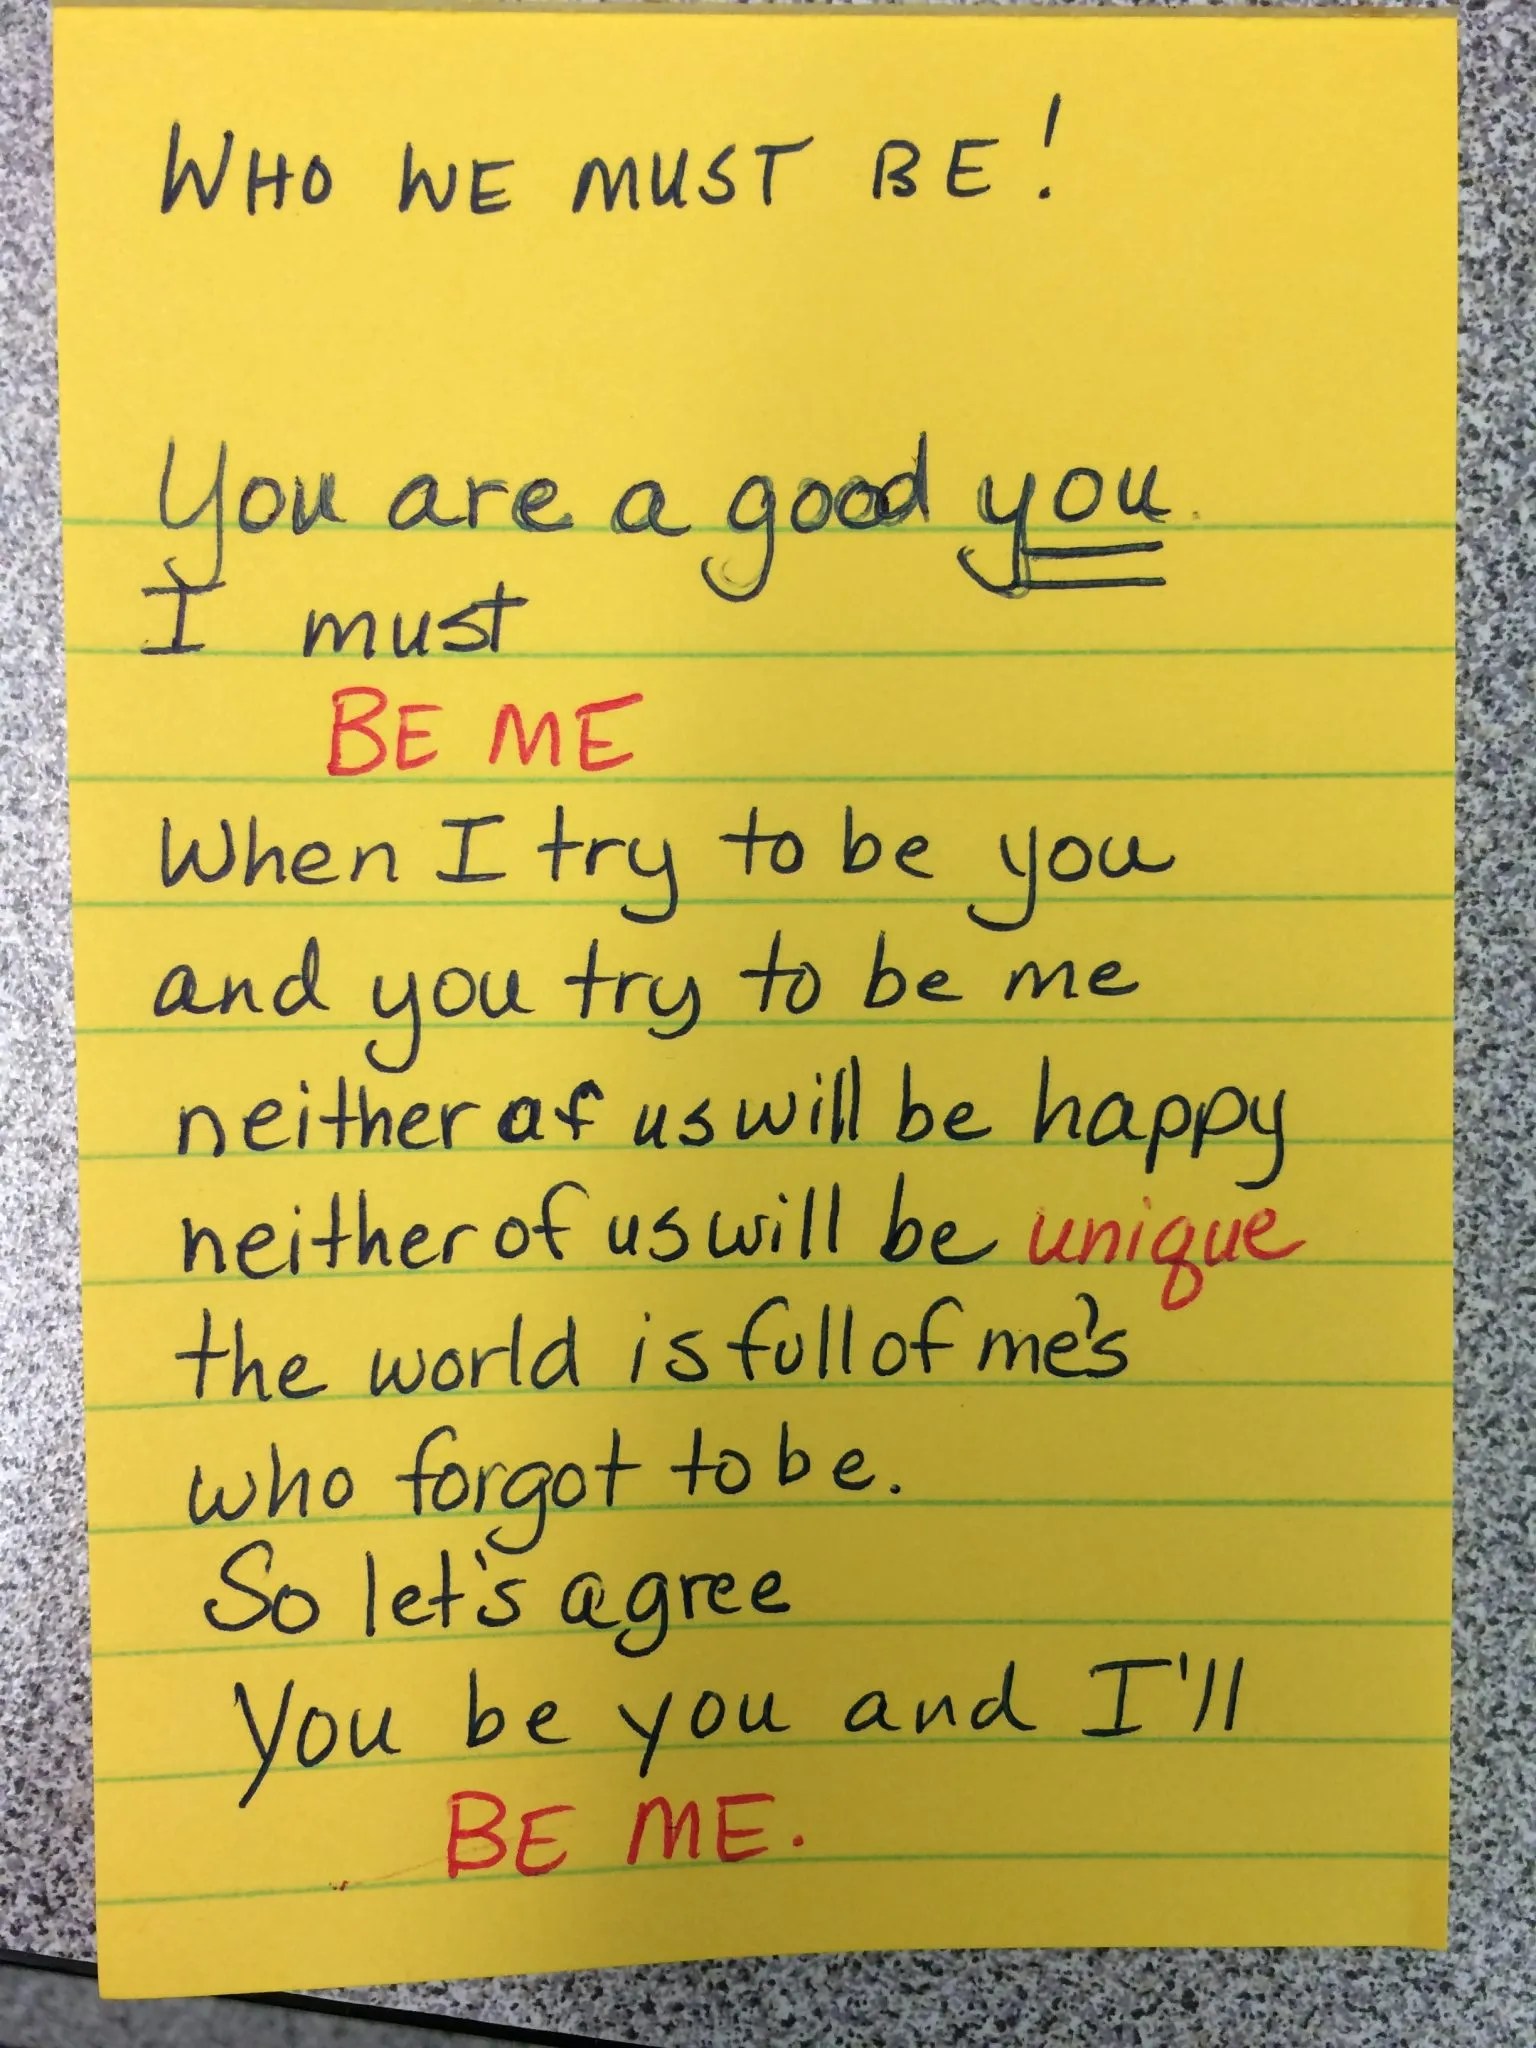 WHO WE MUST BE!
You are a good you.
I must
BE ME
When I try to be you
and you try to be me
neither of us will be happy
neither of us will be unique
the world is full of me's
who forgot to be.
So let's agree
You be you and I'll
BE ME.